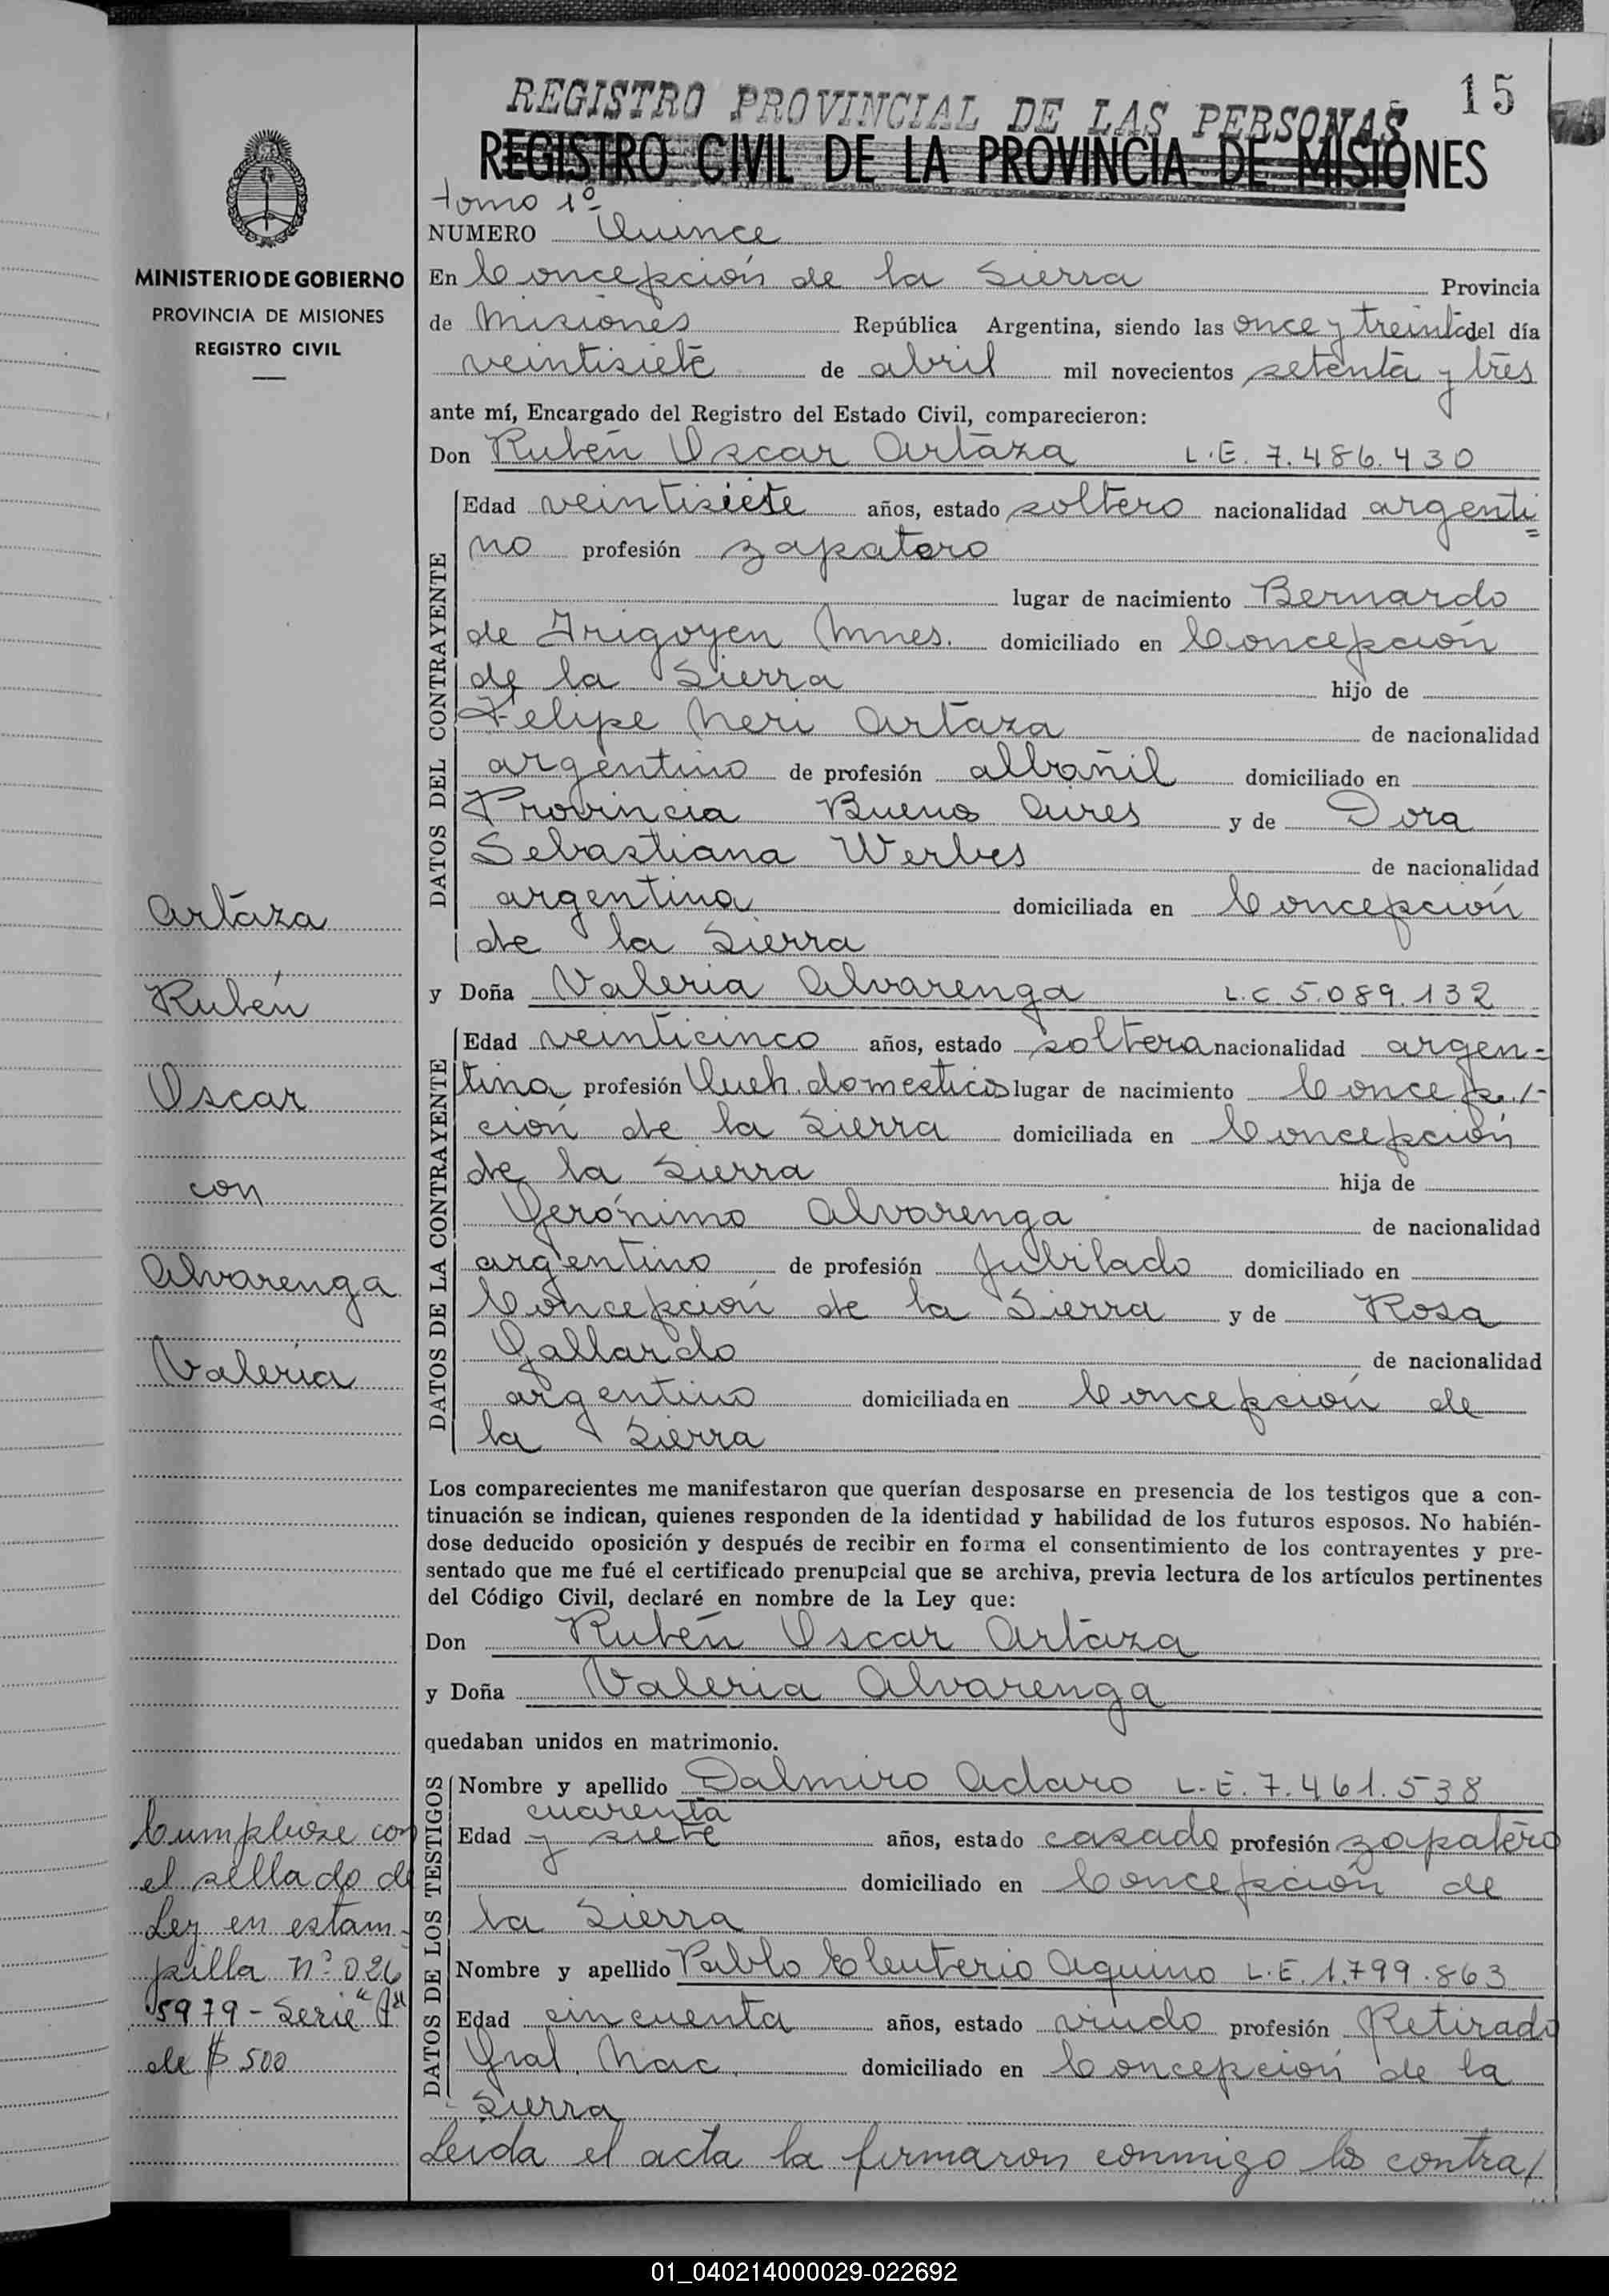 15
REGISTRO PROVINCIAL DE LAS PERSONAS
REGISTRO CIVIL DE LA PROVINCIA DE MISIONES
tomo 1º
NUMERO Quince
MINISTERIO DE GOBIERNO
PROVINCIA DE MISIONES
REGISTRO CIVIL
En Concepción de la Sierra Provincia
de Misiones República Argentina, siendo las once y treinta del día
veintisiete de abril mil novecientos setenta y tres
ante mí, Encargado del Registro del Estado Civil, comparecieron:
Don Rubén Oscar Artaza L.E. 7.486.430
DATOS DEL CONTRAYENTE
Edad veintisiete años, estado soltero nacionalidad argenti=
no profesión zapatero
lugar de nacimiento Bernardo
de Irigoyen Mnes. domiciliado en Concepción
de la Sierra hijo de
Felipe Neri Artaza de nacionalidad
argentino de profesión albañil domiciliado en
Provincia Buenos Aires y de Dora
Sebastiana Werbes de nacionalidad
argentina domiciliada en Concepción
de la Sierra
y Doña Valeria Alvarenga L.C. 5.089.132
DATOS DE LA CONTRAYENTE
Edad veinticinco años, estado soltera nacionalidad argen=
tina profesión Queh. domesticos lugar de nacimiento Concep-
ción de la Sierra domiciliada en Concepción
de la Sierra hija de
Gerónimo Alvarenga de nacionalidad
argentino de profesión Jubilado domiciliado en
Concepción de la Sierra y de Rosa
Gallardo de nacionalidad
argentino domiciliada en Concepción de
la Sierra
Artaza
Rubén
Oscar
con
Alvarenga
Valeria
Los comparecientes me manifestaron que querían desposarse en presencia de los testigos que a con-
tinuación se indican, quienes responden de la identidad y habilidad de los futuros esposos. No habién-
dose deducido oposición y después de recibir en forma el consentimiento de los contrayentes y pre-
sentado que me fué el certificado prenupcial que se archiva, previa lectura de los artículos pertinentes
del Código Civil, declaré en nombre de la Ley que:
Don Rubén Oscar Artaza
y Doña Valeria Alvarenga
quedaban unidos en matrimonio.
DATOS DE LOS TESTIGOS
Nombre y apellido Dalmiro Adaro L.E. 7.461.538
cuarenta
Edad y siete años, estado casado profesión zapatero
domiciliado en Concepción de
la Sierra
Nombre y apellido Pablo Eleuterio Aquino L.E. 1.799.863
Edad cincuenta años, estado viudo profesión Retirado
Gral. Nac. domiciliado en Concepción de la
Sierra
Leida el acta la firmaron conmigo los contra/
Cumpliose con
el sellado de
Ley en estam-
pilla nº 026
5979 - Serie "A"
de $ 500
01_040214000029-022692